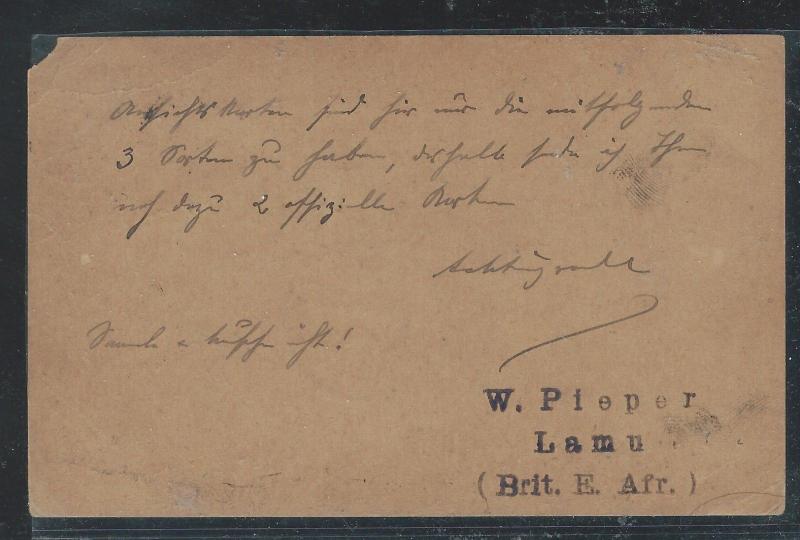 Ansichtskarten sind hier nur die mitfolgenden
3 Sorten zu haben, deshalb sende ich Ihnen
noch dazu 2 offizielle Karten
Achtungsvoll
Sammle u. tausche nicht!
W. Pieper
Lamu
(Brit. E. Afr.)